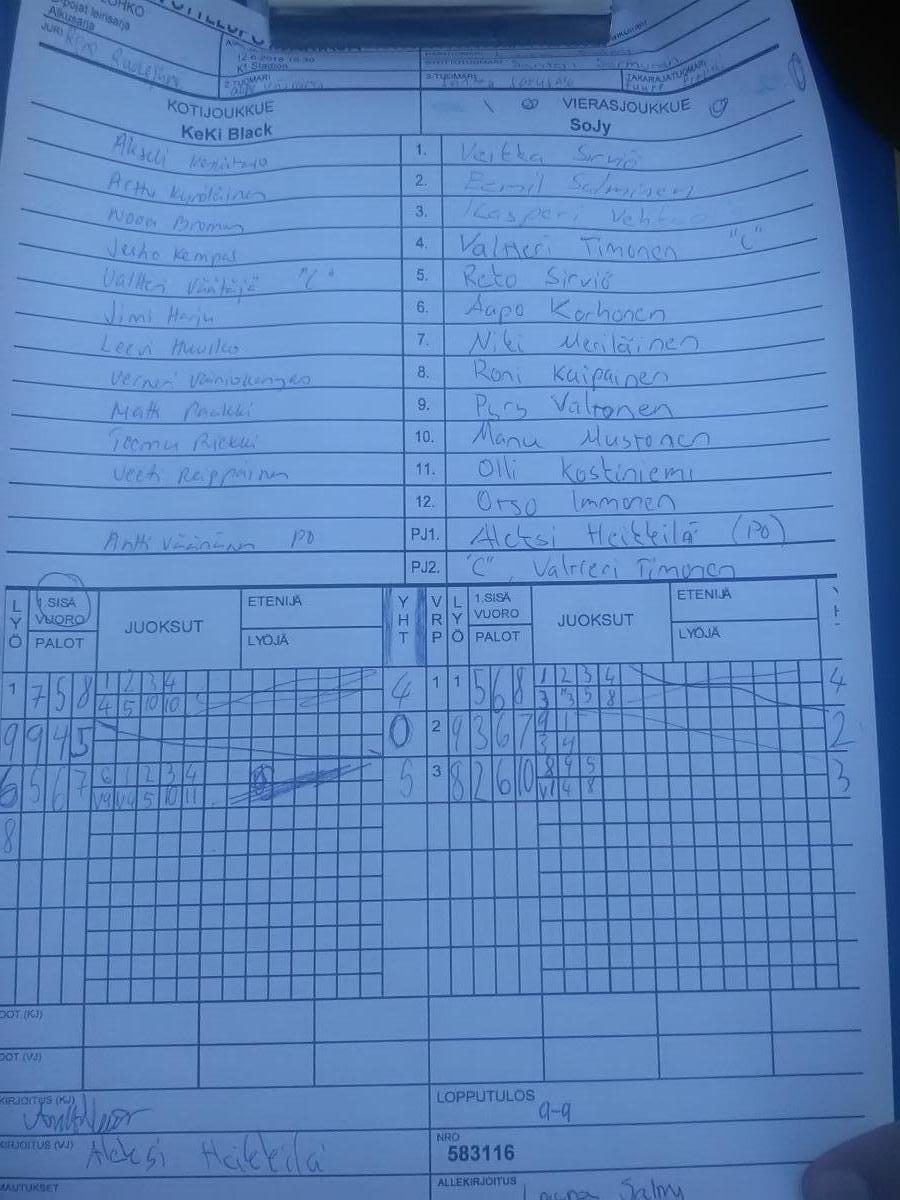 pojat leirisarja
Alkusarja
JURI
12.6.2018 18.30
K1 Stadion
2-TUOMARI
3-TUOMARI
TAKARAJATUOMARI
KOTIJOUKKUE
VIERASJOUKKUE
KeKi Black
SoJy
Akseli 1. Veikka Sirviö
Arttu Kyröläinen 2. Eemil Salminen
Nooa Broman 3. Kasperi
Juho Kempas 4. Valtteri Timonen "C"
Valtteri Väätäjä "C" 5. Reto Sirviö
Jimi Harju 6. Aapo Korhonen
Leevi Huusko 7. Niki Meriläinen
Verneri Väiniökangas 8. Roni Kaipainen
Matti Paukki 9. Pyry Valtonen
Teemu Riekki 10. Manu Mustonen
Veeti Reippainen 11. Olli Koskiniemi
12. Orso Immonen
Antti Väänänen PO PJ1. Aleksi Heikkilä (PO)
PJ2. "C", Valtteri Timonen
LYÖ 1.SISÄ VUORO PALOT JUOKSUT ETENIJÄ LYÖJÄ YHT VRP LYÖ 1.SISÄ VUORO PALOT JUOKSUT ETENIJÄ LYÖJÄ
1 7 5 8 1 2 3 4 4 1 1 5 6 8 1 2 3 4 4
4 5 10 10 3 3 5 8
9 9 4 5 0 2 9 3 6 7 9 1 2
3 4
6 5 6 7 6 1 2 3 4 5 3 8 2 6 10 8 9 5 3
V4 V4 5 10 11 V1 4 8
8
(KJ)
(VJ)
KIRJOITUS (KJ)
LOPPUTULOS
9-9
KIRJOITUS (VJ) Aleksi Heikkilä
NRO
583116
ALLEKIRJOITUS
Salmi